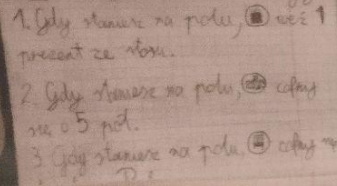 1. Gdy staniesz na polu, weź 1
prezent ze stosu.
2. Gdy staniesz na polu, cofnij
się o 5 pól.
3 Gdy staniesz na polu, cofnij